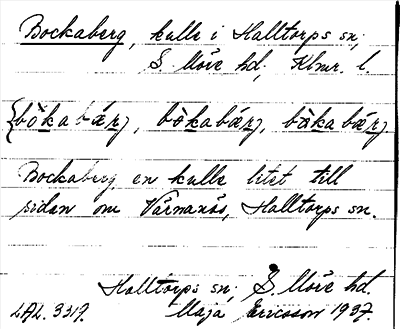 Bockaberg, kulle i Halltorps sn;
S. Möre hd, Klmr. l.
{bòkabær}, bòkabær}, bàkabær}
Bockaberg en kulle litet till
sidan om Värnanäs, Halltorps sn.
Halltorps sn; S. Möre hd.
LAL. 3319. Maja Ericsson 1937.